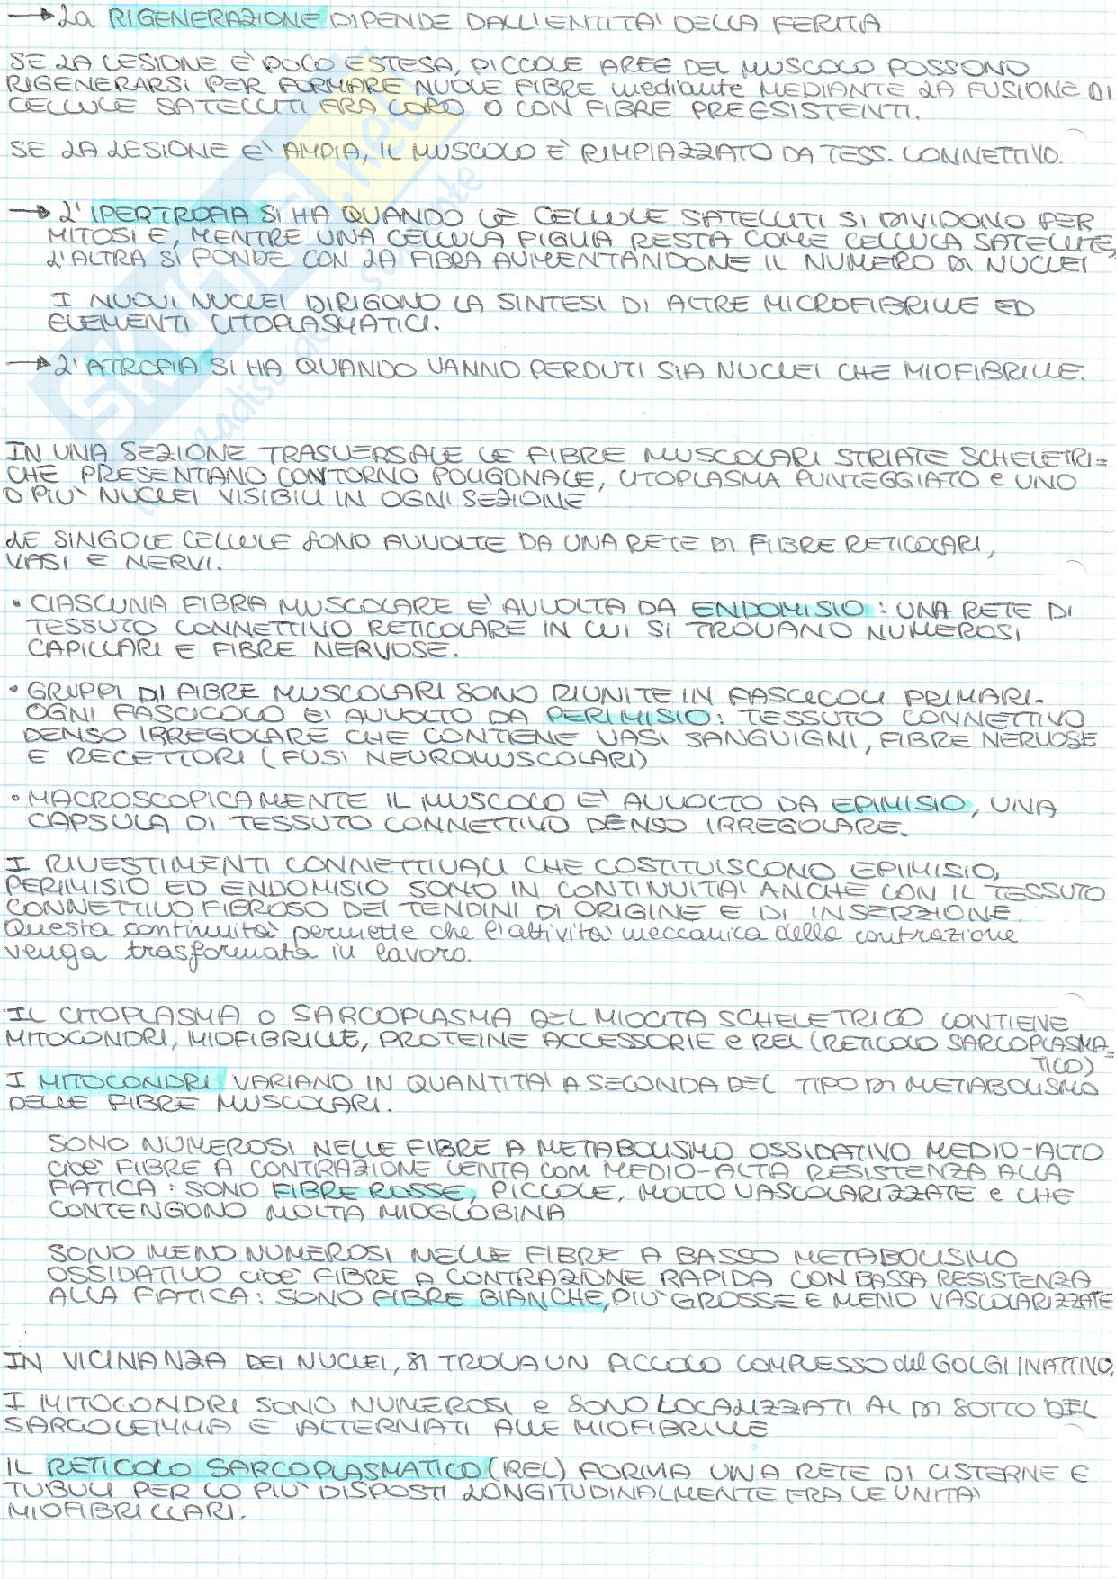 → La RIGENERAZIONE DIPENDE DALL'ENTITA' DELLA FERITA
SE LA LESIONE È POCO ESTESA, PICCOLE AREE DEL MUSCOLO POSSONO
RIGENERARSI PER FORMARE NUOVE FIBRE mediante MEDIANTE LA FUSIONE DI
CELLULE SATELLITI FRA LORO O CON FIBRE PREESISTENTI.
SE LA LESIONE E' AMPIA, IL MUSCOLO È RIMPIAZZATO DA TESS. CONNETTIVO.
→ L'IPERTROFIA SI HA QUANDO LE CELLULE SATELLITI SI DIVIDONO PER
MITOSI E, MENTRE UNA CELLULA FIGLIA RESTA COME CELLULA SATELLITE,
L'ALTRA SI FONDE CON LA FIBRA AUMENTANDONE IL NUMERO DI NUCLEI
I NUOVI NUCLEI DIRIGONO LA SINTESI DI ALTRE MICROFIBRILLE ED
ELEMENTI CITOPLASMATICI.
→ L'ATROFIA SI HA QUANDO VANNO PERDUTI SIA NUCLEI CHE MIOFIBRILLE.
IN UNA SEZIONE TRASVERSALE LE FIBRE MUSCOLARI STRIATE SCHELETRI=
CHE PRESENTANO CONTORNO POLIGONALE, CITOPLASMA PUNTEGGIATO e UNO
O PIU' NUCLEI VISIBILI IN OGNI SEZIONE
LE SINGOLE CELLULE SONO AVVOLTE DA UNA RETE DI FIBRE RETICOLARI,
VASI E NERVI.
• CIASCUNA FIBRA MUSCOLARE E' AVVOLTA DA ENDOMISIO: UNA RETE DI
TESSUTO CONNETTIVO RETICOLARE IN CUI SI TROVANO NUMEROSI
CAPILLARI E FIBRE NERVOSE.
• GRUPPI DI FIBRE MUSCOLARI SONO RIUNITE IN FASCICOLI PRIMARI.
OGNI FASCICOLO E' AVVOLTO DA PERIMISIO: TESSUTO CONNETTIVO
DENSO IRREGOLARE CHE CONTIENE VASI SANGUIGNI, FIBRE NERVOSE
E RECETTORI (FUSI NEUROMUSCOLARI)
• MACROSCOPICAMENTE IL MUSCOLO E' AVVOLTO DA EPIMISIO, UNA
CAPSULA DI TESSUTO CONNETTIVO DENSO IRREGOLARE.
I RIVESTIMENTI CONNETTIVALI CHE COSTITUISCONO EPIMISIO,
PERIMISIO ED ENDOMISIO SONO IN CONTINUITA' ANCHE CON IL TESSUTO
CONNETTIVO FIBROSO DEI TENDINI DI ORIGINE E DI INSERZIONE.
Questa continuita' permette che l'attivita' meccanica della contrazione
venga trasformata in lavoro.
IL CITOPLASMA O SARCOPLASMA DEL MIOCITA SCHELETRICO CONTIENE
MITOCONDRI, MIOFIBRILLE, PROTEINE ACCESSORIE e REL (RETICOLO SARCOPLASMA=
TICO)
I MITOCONDRI VARIANO IN QUANTITA' A SECONDA DEL TIPO DI METABOLISMO
DELLE FIBRE MUSCOLARI.
SONO NUMEROSI NELLE FIBRE A METABOLISMO OSSIDATIVO MEDIO-ALTO
cioe' FIBRE A CONTRAZIONE LENTA COM MEDIO-ALTA RESISTENZA ALLA
FATICA: SONO FIBRE ROSSE, PICCOLE, MOLTO VASCOLARIZZATE e CHE
CONTENGONO MOLTA MIOGLOBINA
SONO MENO NUMEROSI NELLE FIBRE A BASSO METABOLISMO
OSSIDATIVO cioe' FIBRE A CONTRAZIONE RAPIDA CON BASSA RESISTENZA
ALLA FATICA: SONO FIBRE BIANCHE, PIU' GROSSE E MENO VASCOLARIZZATE
IN VICINANZA DEI NUCLEI, SI TROVA UN PICCOLO COMPLESSO del GOLGI INATTIVO.
I MITOCONDRI SONO NUMEROSI e SONO LOCALIZZATI AL DI SOTTO DEL
SARCOLEMMA E ALTERNATI ALLE MIOFIBRILLE
IL RETICOLO SARCOPLASMATICO (REL) FORMA UNA RETE DI CISTERNE E
TUBULI PER LO PIU' DISPOSTI LONGITUDINALMENTE FRA LE UNITA'
MIOFIBRILLARI.